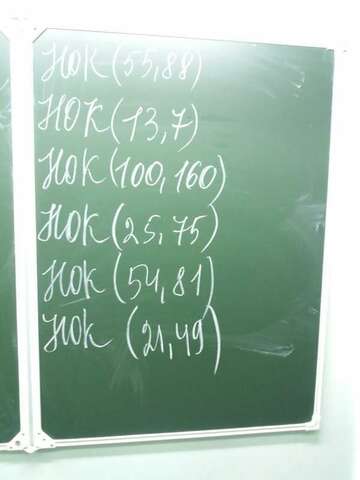 НОК (55,88)
НОК (13,7)
НОК (100,160)
НОК (25,75)
НОК (54,81)
НОК (21,49)